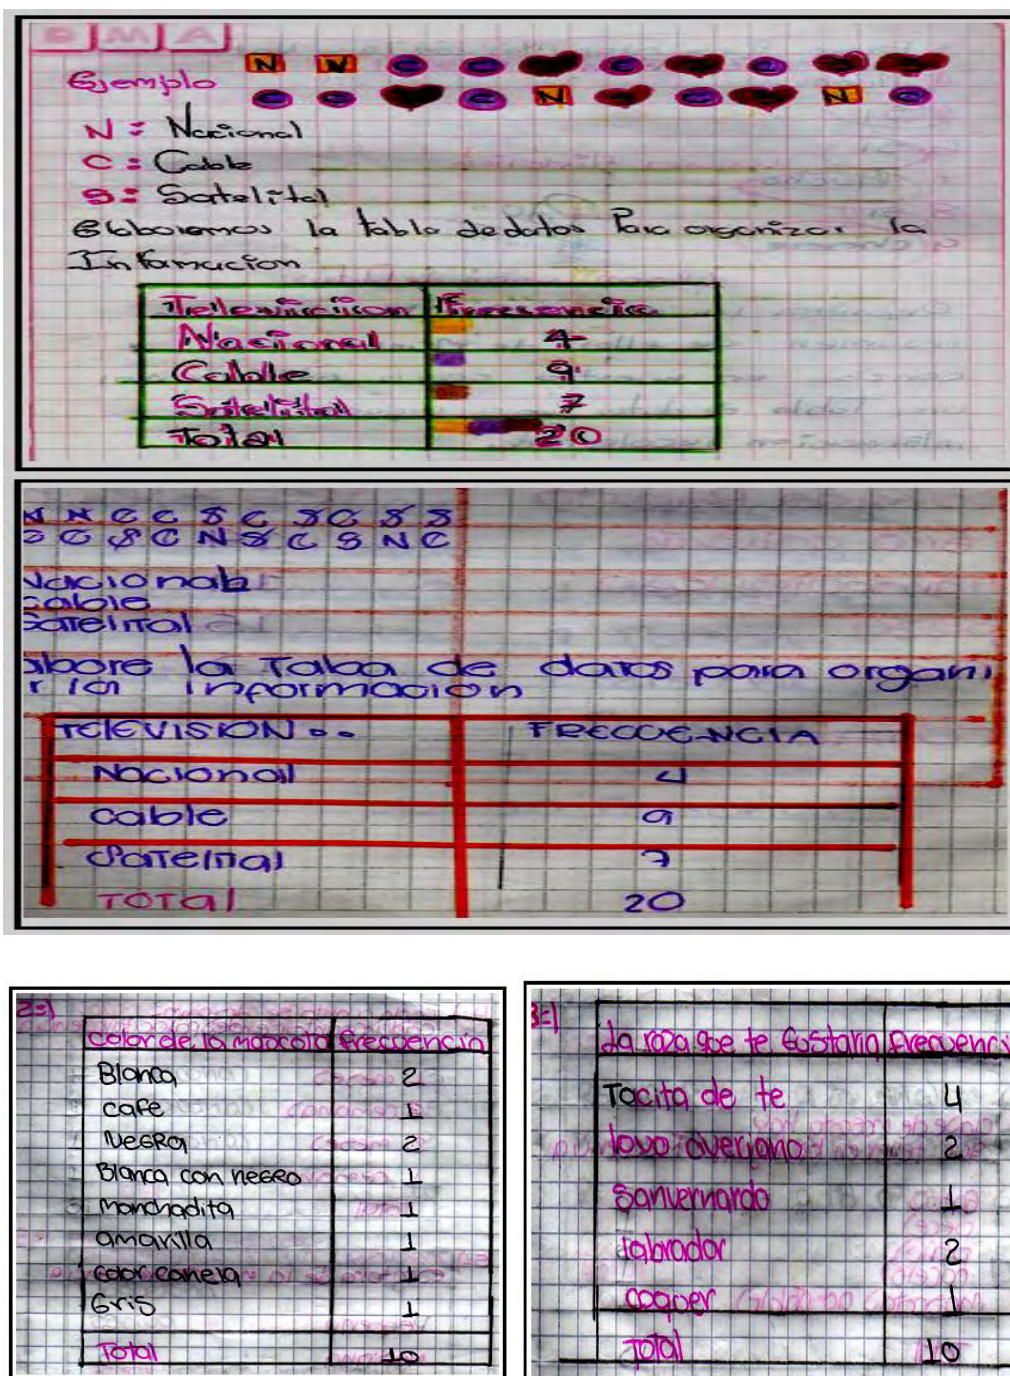 N N C C C C
Ejemplo
C C C N C N C
N = Nacional
C = Cable
S = Satelital
Elaboremos la tabla de datos Para organizar la
Informacion
Television Frecuencia
Nacional 4
Cable 9
Satelital 7
Total 20
N N C C S C S C S S
C S C N S C S N C
Nacional
cable
Satelital
abore la Taba de datos para organi
r la informacion
TELEVISION FRECUENCIA
Nacional 4
cable 9
Satelital 7
TOTal 20
2=)
Color de la mascota frecuencia
Blanca 2
cafe 1
Negra 2
Blanca con negro 1
manchadita 1
amarilla 1
color canela 1
Gris 1
Total 10
3=)
La raza que te gustaria frecuenci
Tacita de te 4
lovo overjano 2
Sanvernardo 1
labrador 2
coquer 1
Total 10